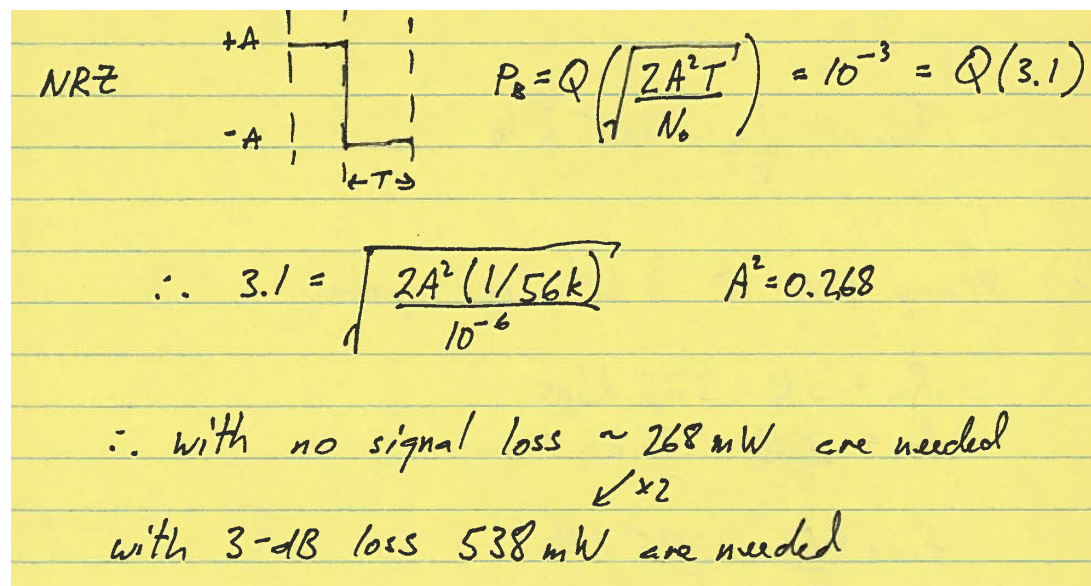 +A
NRZ P_B = Q(√(2A²T/N₀)) = 10⁻³ = Q(3.1)
-A
←T→
∴ 3.1 = √(2A²(1/56k)/10⁻⁶) A²=0.268
∴ with no signal loss ~ 268 mW are needed
↙×2
with 3-dB loss 538 mW are needed